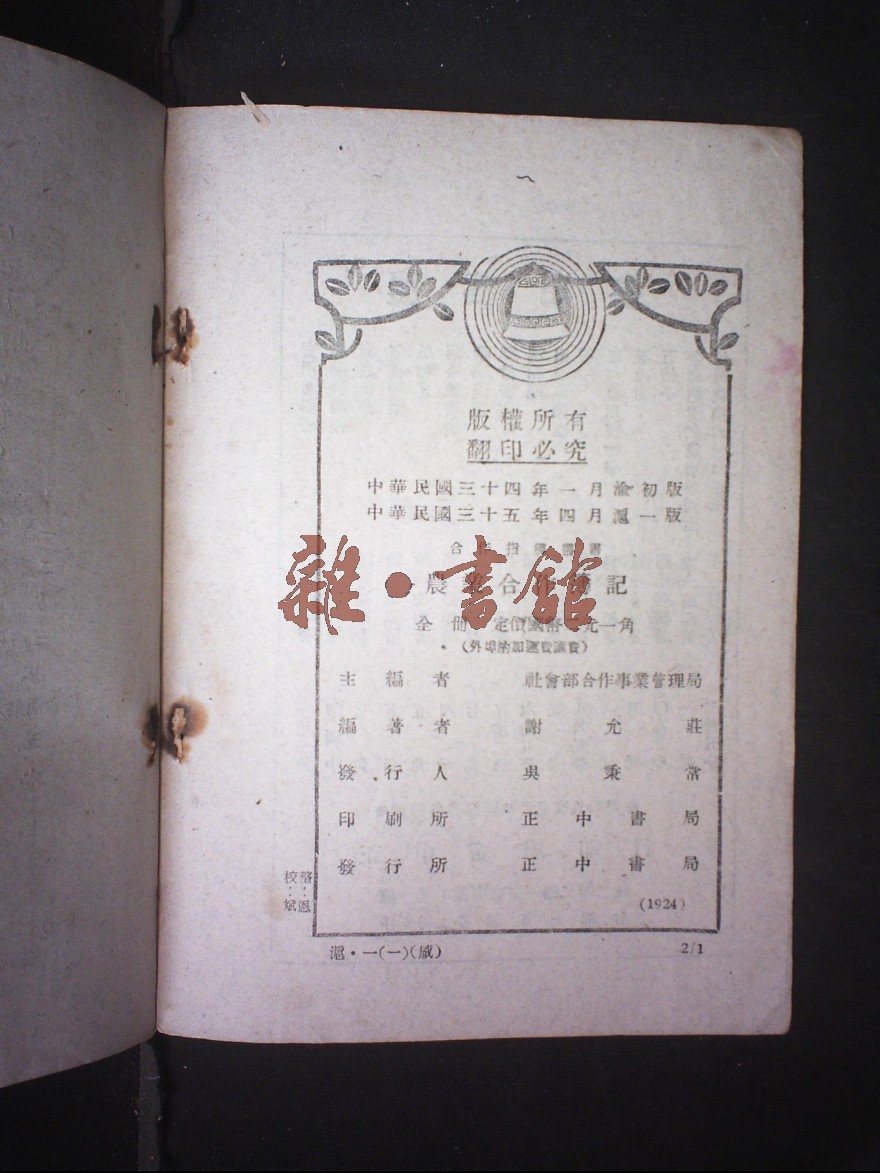 版權所有
翻印必究
中華民國三十四年一月渝初版
中華民國三十五年四月滬一版
合作指導叢書
農業合作簿記
雜·書館
全一冊 定價國幣 元一角
(外埠酌加運費滙費)
主編者 社會部合作事業管理局
編著者 謝允莊
發行人 吳秉常
印刷所 正中書局
發行所 正中書局
校：斌
整：恩
(1924)
滬·一(一)(威)
2/1